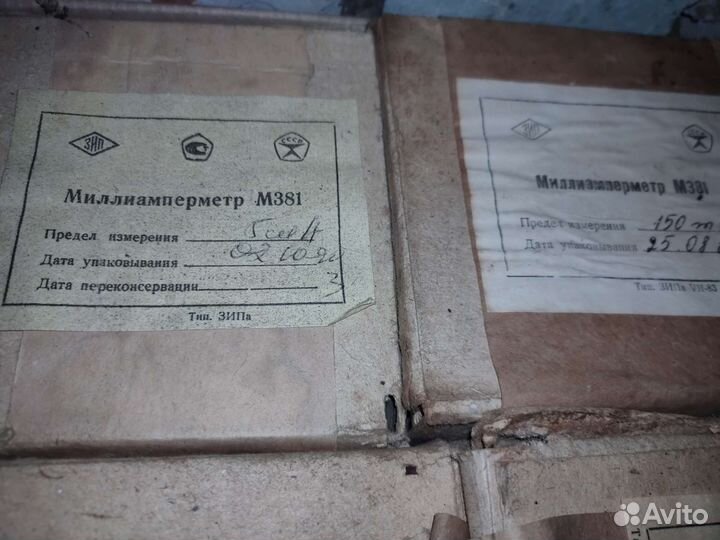 ЗИП
СССР
Миллиамперметр М381
Предел измерения 5 mA
Дата упаковывания 02 10 90
Дата переконсервации
Тип. ЗИПа
ЗИП
СССР
Миллиамперметр М381
Предел измерения 150 m
Дата упаковывания 25.08
Тип. ЗИПа VII-83
Avito